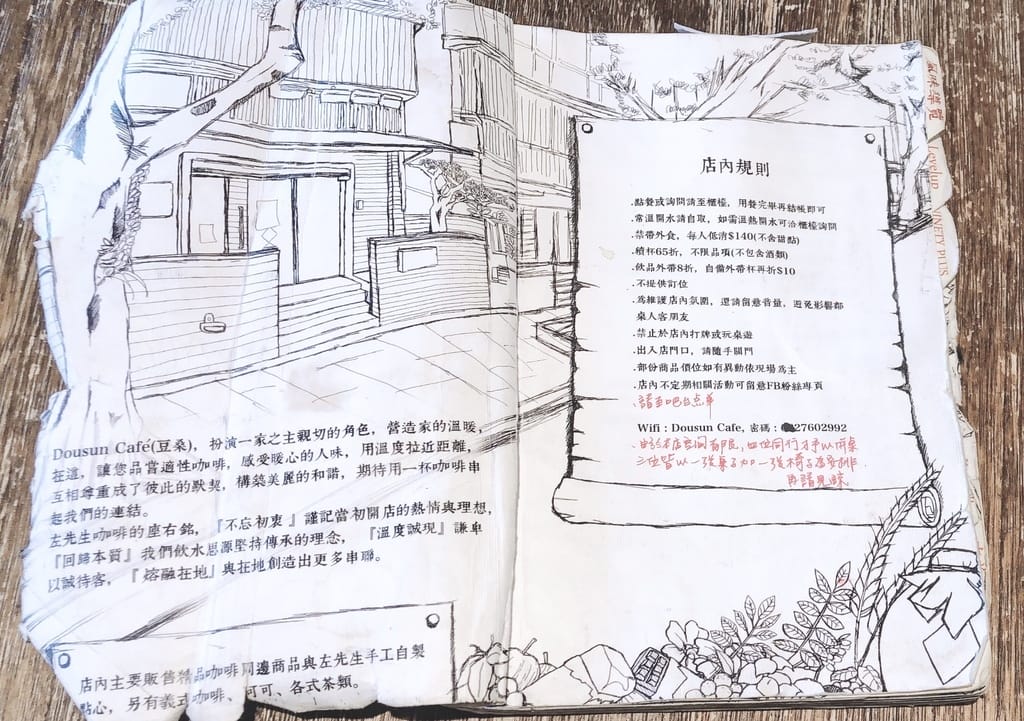 Dousun Café(豆桑)，扮演一家之主親切的角色，營造家的溫暖，
在這，讓您品嘗適性咖啡，感受暖心的人味，用溫度拉近距離，
互相尊重成了彼此的默契，構築美麗的和諧，期待用一杯咖啡串
起我們的連結。
左先生咖啡的座右銘，『不忘初衷』謹記當初開店的熱情與理想，
『回歸本質』我們飲水思源堅持傳承的理念，『溫度誠現』謙卑
以誠待客，『熔融在地』與在地創造出更多串聯。
店內主要販售精品咖啡周邊商品與左先生手工自製
點心，另有義式咖啡、可可、各式茶類。
店內規則
.點餐或詢問請至櫃檯，用餐完畢再結帳即可
.常溫開水請自取，如需溫熱開水可洽櫃檯詢問
.禁帶外食，每人低消$140(不含甜點)
.續杯65折，不限品項(不包含酒類)
.飲品外帶8折，自備外帶杯再折$10
.不提供訂位
.為維護店內氛圍，還請留意音量，避免影響鄰
桌人客朋友
.禁止於店內打牌或玩桌遊
.出入店門口，請隨手關門
.部份商品價位如有異動依現場為主
.店內不定期相關活動可留意FB粉絲專頁
.請至吧台点单
Wifi：Dousun Cafe, 密碼：27602992
.由於本店空間有限，四位同行才可以併桌
三位皆以一張桌子加一張椅子為安排
再請見諒
Lovelup
NINETY PLUS